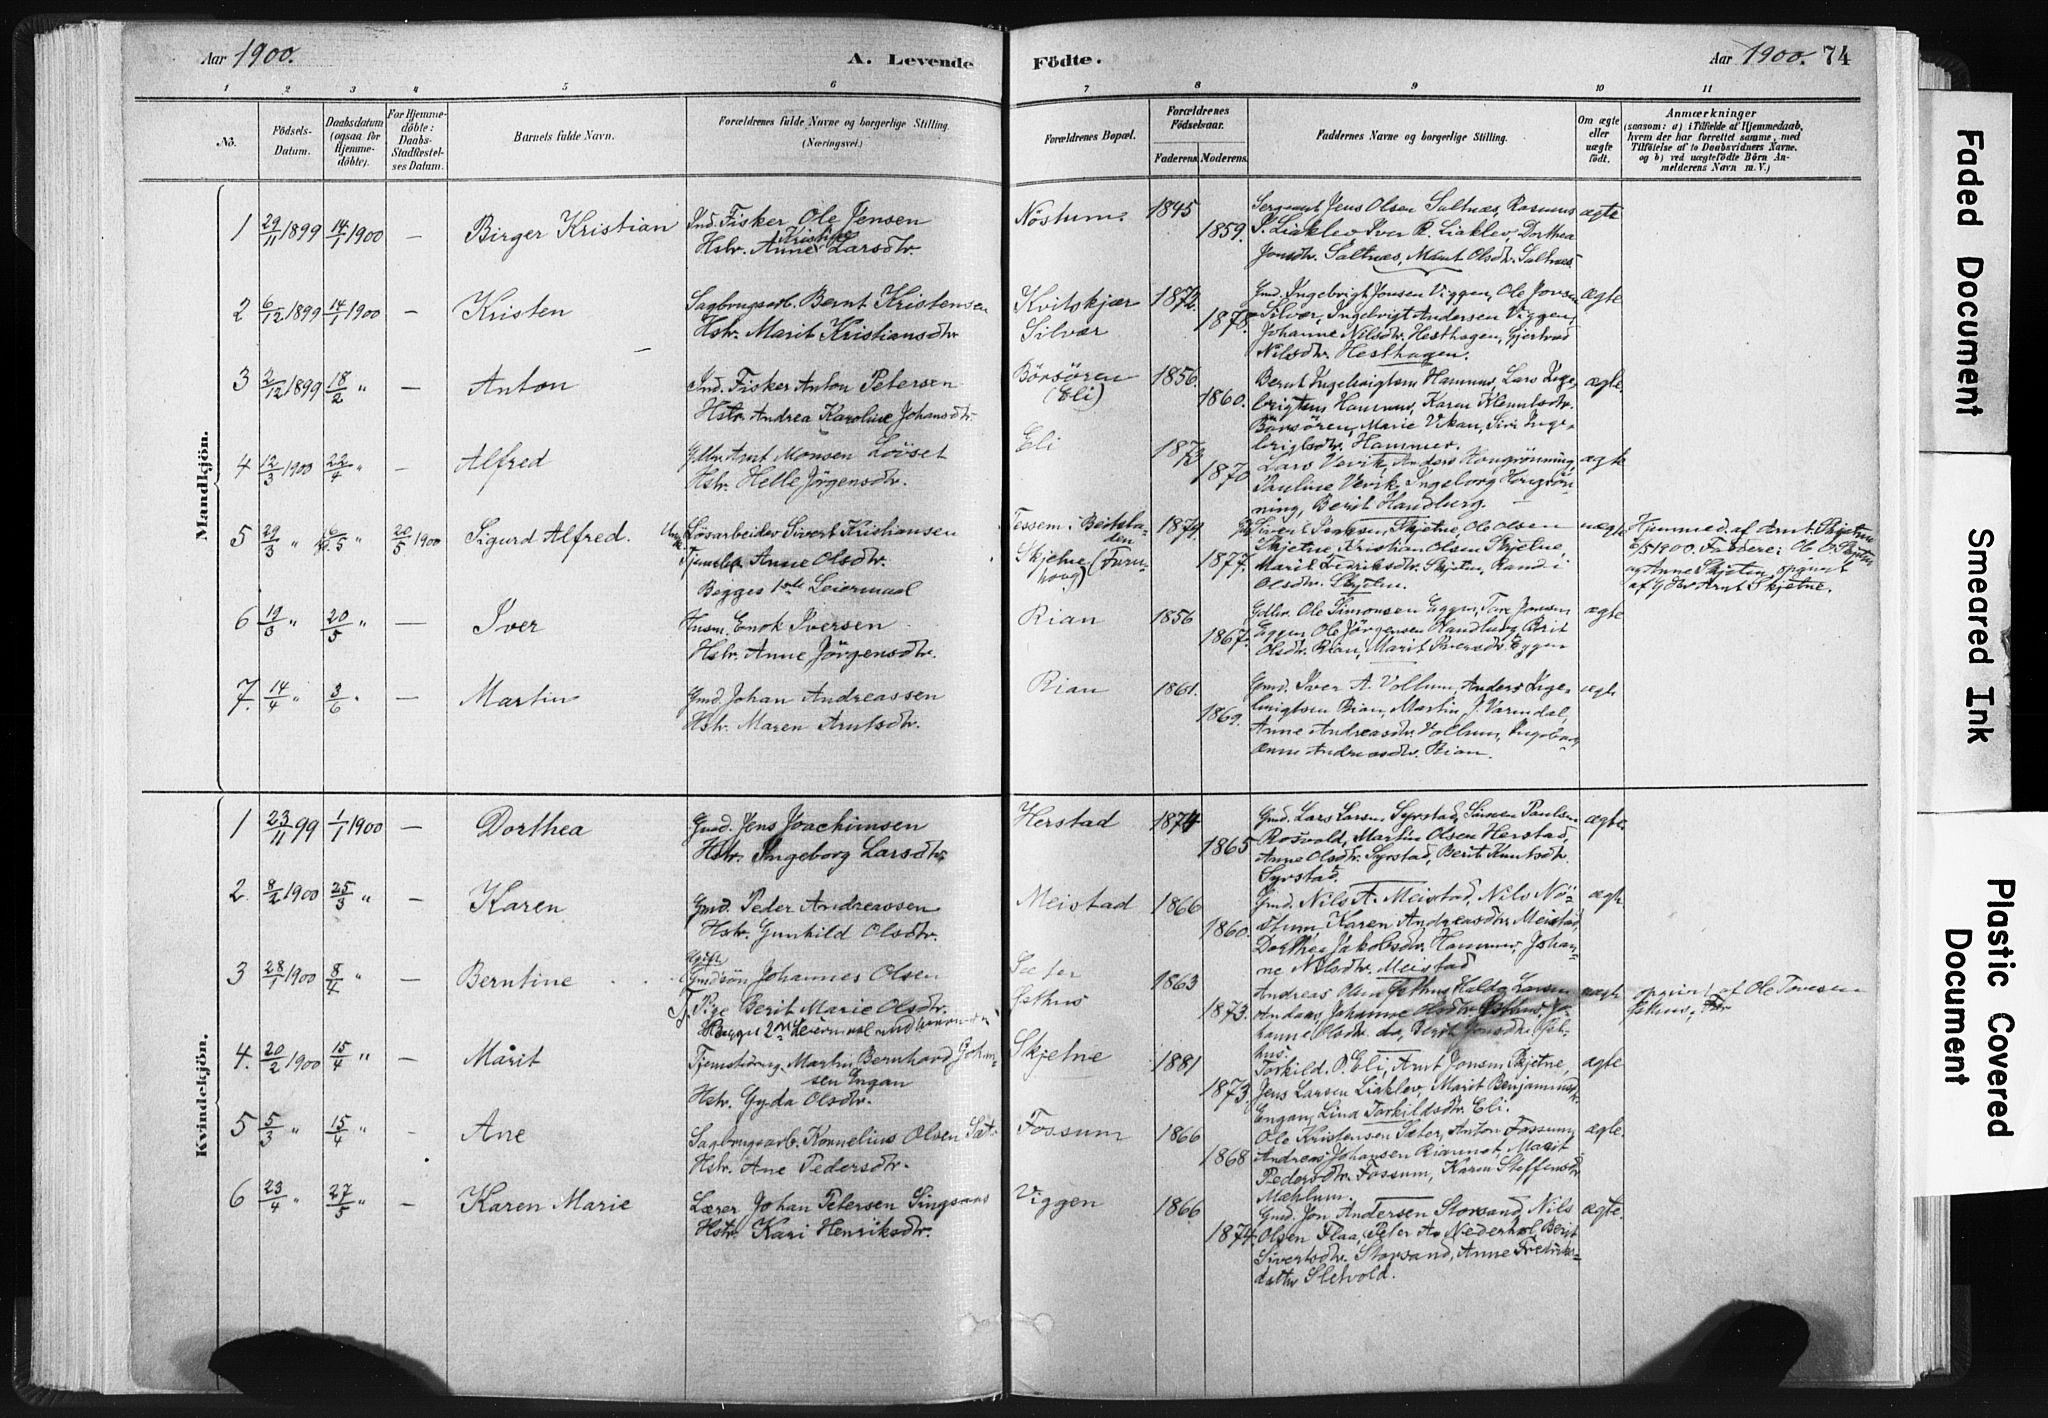 Aar 1900.
A. Levende
Födte.
Aar 1900. 74
1 2 3 4 5 6 7 8 9 10 11
No.
Födsels-Datum.
Daabsdatum (ogsaa for Hjemmedöbte).
For Hjemmedöbte: Daabs-Stadfæstelses Datum.
Barnets fulde Navn.
Forældrenes fulde Navne og borgerlige Stilling. (Næringsvei.)
Forældrenes Bopæl.
Forældrenes Födselsaar.
Faderens. Moderens.
Faddernes Navne og borgerlige Stilling.
Om ægte eller uægte födt.
Anmærkninger
(saasom: a) i Tilfælde af Hjemmedaab, hvem der har forrettet samme, med Tilföielse af to Daabsvidners Navne, og b) ved uægtefödte Börn Anmelderens Navn m. V.)
Mandkjön.
1 29/11 1899 14/1 1900 — Birger Kristian
Ind. Fisker Ole Jensen
Hstr. Anne Kristine Larsdtr.
Nöstum. 1845 1859.
Sergeant Jens Olsen Saltnæs, Rasmus
P. Liaklev Iver R. Liaklev, Dorthea
Jonsdtr. Saltnæs, Marit Olsdtr. Saltnæs
ægte
2 6/12 1899 14/1 1900 — Kristen
Sagbrugsarb. Bernt Kristensen
Hstr. Marit Kristiansdtr.
Kvitskjær
Silvær
1872. 1878.
Gmd. Ingebrigt Jonsen Viggen, Ole Jonsen
Silvær, Ingebrigt Andersen Viggen,
Johanne Nilsdtr. Hesthagen, Gjertrud
Nilsdtr. Hesthagen.
ægte
3 2/12 1899 18/2 " — Anton
Ind. Fisker Anton Petersen
Hstr. Andrea Karoline Johansdtr.
Börsören
(Eli)
1856. 1860.
Bernt Ingebrigtsen Hammer, Lars Inge-
brigtsen Hammer, Karen Klemetsdtr.
Börsören, Marie Vikan, Siri Inge-
brigtsdtr. Hammer.
ægte
4 12/3 1900 22/4 " — Alfred
Gdbr. Arnt Monsen Lövset
Hstr. Helle Jörgensdtr.
Eli 1873 1870
Lars Vevik, Anders Hongrönning,
Pauline Vevik, Ingeborg Hongrön-
ning, Berit Handberg.
ægte
5 29/3 " 6/5 20/5 1900 Sigurd Alfred.
Lösarbeider Sivert Kristiansen
Anne Olsdtr.
Begges 1ste Leiermaal
Tessem i Beitstaden
Skjetne (Furuhoug)
1874. 1877.
Skjetne, Ole Olsen
Skjetne, Kristian Olsen Skjetne,
Marit Fredriksdtr. Skjetne, Randi
Olsdtr. Skjetne.
uægte
Hjemmed. af Arnt Skjetne
6/5 1900. Faddere: O. O. Skjetne
og Anne Skjetne, opgivet
af Gdbr Arnt Skjetne.
6 19/3 " 20/5 " — Iver
Husm. Enok Iversen
Hstr. Anne Jörgensdtr.
Rian 1856 1867.
Gdbr. Ole Simonsen Eggen, Tore Jonsen
Eggen, Ole Jörgensen Handberg, Berit
Olsdtr. Rian, Marit Iversdtr. Eggen
ægte
7. 14/4 " 3/6 " — Martin
Gmd. Johan Andreassen
Hstr. Maren Arntsdtr.
Rian 1861. 1869.
Gmd. Iver A. Vollum, Anders Inge-
brigtsen Rian, Martin J. Varmdal,
Anne Andreasdtr. Vollum, Ingeborg
Anne Andreasdtr. Rian.
ægte
Kvindekjön.
1 23/11 99 1/1 1900 — Dorthea
Gmd. Jens Joachimsen
Hstr. Ingeborg Larsdtr.
Herstad 1874 1865
Gmd. Lars Larsen Syrstad, Simen Paulsen
Rosvold, Martin Olsen Herstad,
Anne Olsdtr. Syrstad, Berit Knutsdtr.
Syrstad.
ægte
2. 8/2 1900 25/3 " — Karen
Gmd. Peder Andreassen
Hstr. Gunhild Olsdtr.
Meistad 1866 1860.
Gmd. Nils A. Meistad, Nils Nö-
stum, Karen Andreasdtr. Meistad,
Dorthea Jakobsdtr. Hammer, Johan-
ne Nilsdtr. Meistad
ægte
3 28/1 1900 8/4 " — Berntine
Ugift
Gmdsön Johannes Olsen
Pige Berit Marie Olsdtr.
Begges 2det Leiermaal
Sæter
Gethus
1863 1873.
Andreas Olsen Gethus, Larsen
Johanne Olsdtr. Gethus, Jo-
hanne Olsdtr. do, Berit Jonsdtr. Get-
hus.
uægte
opgivet af Ole
Gethus,
4. 20/2 1900 15/4 " — Mårit
Tjenestdreng Martin Bernhard Johan-
sen Engan
Hstr. Gyda Olsdtr.
Skjetne 1881 1873.
Torkild O. Eli, Arnt Jonsen Skjetne,
Jens Larsen Liaklev, Marit Benjaminsdtr.
Engan, Lina Torkildsdtr. Eli.
ægte
5 5/3 " 15/4 " — Ane
Sagbrugsarb. Kornelius Olsen
Hstr. Ane Pedersdtr.
Fossum 1866 1868
Ole Kristensen Sæter, Anton Fossum,
Andreas Johansen Rianmet, Marit
Pedersdtr. Fossum, Karen Steffensdtr.
Mehlum.
ægte.
6 23/4 " 27/5 " — Karen Marie
Lærer Johan Petersen Singsaas
Hstr. Kari Henriksdtr.
Viggen 1866 1874.
Gmd. Jon Andersen Storsand, Nils
Olsen Flaa, Peter A. Nederhol, Berit
Sivertsdtr. Storsand, Anne Fredriks-
datter Sletvold.
ægte.
Faded Document
Smeared Ink
Plastic Covered Document